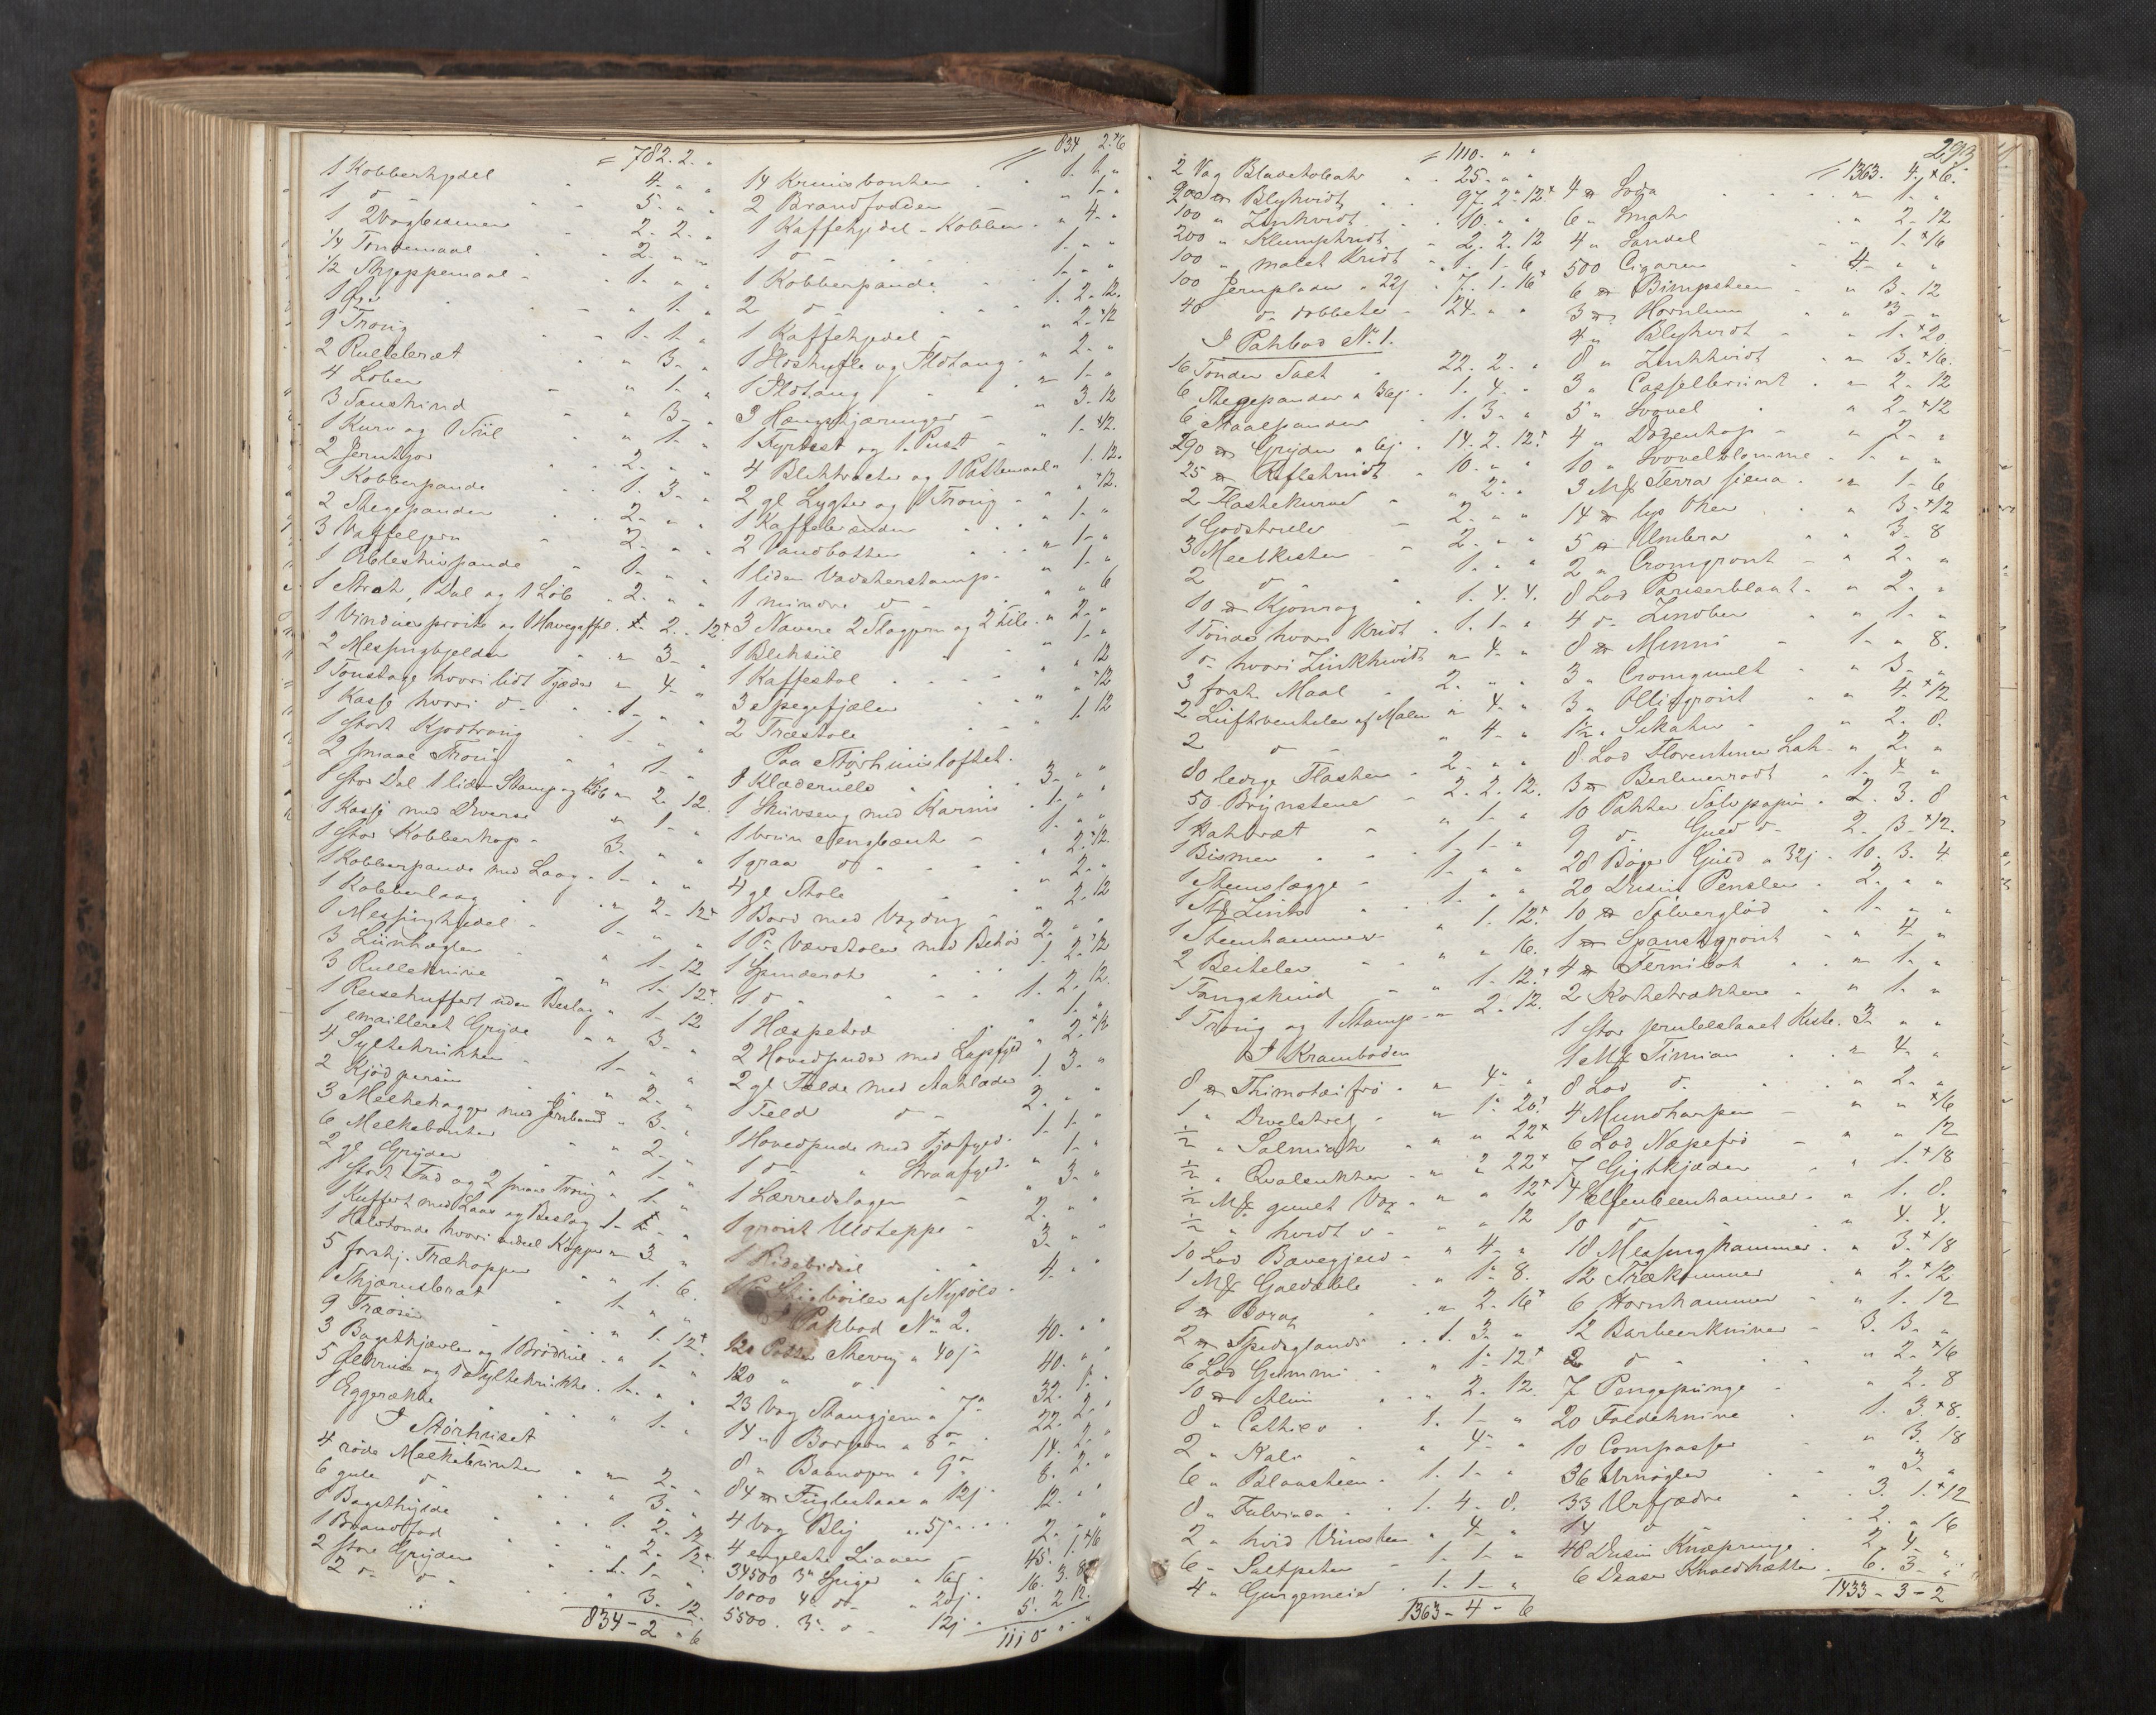 = 782. 2. "
1 Kobberkjedel " 4. " "
1 d° " 5. " "
1 2Vogbismer 2. 2. "
1/4 Tøndemaal 2. " "
1/2 Skjeppemaal 1. " "
1 Øxe " 1. "
9 Troug 1. 1. "
2 Rullebræt " 3. "
4 Løber " 1. "
3 Saueskind " 3. "
1 Kurv og 1 Siil " 1. "
2 Jerntyor 2. " "
1 Kobberpande 1. 3. "
2 Stegepander 2. " "
3 Vaffeljern 2. " "
1 Ebleskivpande 1. " "
1 Strak, 1 Dal og 1 Løb " 2. " "
1 Vinduesprøite og 1 Havegaffel
2 Messingkjedler " 3. "
1 Tønstage hvori lidt Tjære " 4. "
1 Kasse hvori d° 1. " "
1 stort Kjødtroug 1. " "
2 smaae Troug " 1. "
1 stor Dal 1 liden Stamp og 1 Løb " 2. 12.
1 Kasse med Diverse " 1. "
1 stor Kobberkop 3. " "
1 Kobberpande med Laag 1. " "
1 Kobberlaag " 2. 12
1 Messingkjedel 1. " "
3 Liinhegler " 1. 12
3 Rulleknive " 1. 12
1 Reisekuffert uden Beslag " 1. 12
1 emailleret Gryde " 3. "
4 Syltekrukker 1. " "
2 Kjødpersier " 2. "
3 Melkebøtter med Jernbaand " 3. "
6 Melkebøtter " 2. "
2 gl Gryder " 1. "
1 stort Fad og 2 smaa Troug " 1. "
1 Kuffert med Laas og Beslag
1 Halvtønde hvori endeel Kopper " 3. "
5 forskj. Trækopper " 1. 6.
1 Skjærnebræt " 1. "
9 Træøser " 1. 12
3 Bagstkjævler og 1 Brødriil " 1. "
5 Glkruse og 1 Syltekrukke 1. " "
1 Eggerække " 1. "
I Størhuset
4 røde Melkebøtter " 2. "
6 gule d° " 3. "
1 Bagsthylde 1. 2. 12
1 Brandfad " 2. 12
2 store Gryder 1. 1. "
2 d° d° " 3. 12.
834 - 2 " 6
= 834 2. 6
14 Kruusbøtter 1. 1. "
2 Brandfødder " 1. "
1 Kaffekjedel - Kobber " 4. "
1 d° 1. " "
1 Kobberpande 1. " "
2 d° 1. 2. 12.
1 Kaffekjedel " 2. 12
1 Høskuffe og Ildtang " 2. "
1 Ildtang " 1. "
3 Hængskjæringer " 3. 12
1 Fyrtøi og 1 Pust " 1. 12.
4 Bliktragter og 1 Pottemaal " 1. 12.
2 gl Lygter og 1 Troug " " 12.
1 Kaffebrænder " 1. "
2 Vandbøtter " 1. "
1 liden Vadskerstamp " 1. "
1 mindre d° " " 6
3 Navere 2 Slagjern og 2 File " 2. "
1 Bliksiil " 1. "
1 Kaffestol " " 12
3 Spegefjæler " " 12
2 Træstole " 1. 12
Paa Størhuusloftet.
1 Klæderulle 3. " "
1 Skuvseng med Karnis 1. " "
1 bruun Sengbænk 1. " "
1 graa d° " 2. 12.
4 gl Stole " 2. "
1 Bord med Voxdug " 2. 12
1 Pr Vævstoler med Behør 2. " "
1 Spinderok 1. 2. 12
1 d° 1. 2. 12.
1 Hæspetræ " 1. "
2 Hovedpuder med Lapfyld " 2. 12
2 gl Felde med Aaklæder 1. 3. "
1 Feld d° 2. " "
1 Hovedpude med Fjærfyld 1. 1. "
1 d° " Straafyld " 1. "
1 Lærredslagen " 3. "
1 grønt Uldteppe 2. " "
1 Ridebidsel 3. " "
af Nysølv 4. " "
I Pakbod No 2.
120 Potter Skevig a 40 s 40. " "
120 " d° 40. " "
23 Vog Stangjern a 7 32. 1. "
14 " Borjern a 8 22. 2. "
8 " Baandjern a 9 14. 2. "
84 lb Fuglestaal a 12 s 8. 2. "
4 Vog Bly 12. " "
4 engelske Liaaer 2. " "
34500 3" Spiger a 16 s 45. 1. 16
10000 4" d° a 20 s 16. 3. 8
5500 3" d° 12 s 5. 2. 12.
1110 " "
293
= 1110. " "
2 Vog Bladetobak 25. " "
200 lb Blyhvidt 97. 2. 12
100 " Zinkhvidt 10. " "
200 " Klumpkridt " 2. 2. 12
100 " malet Kridt 1. 1. 6
100 Jernplader a 22 s 7. 1. 16
40 d° dobbelte 24. " "
I Pakbod No 1.
16 Tønder Salt 22. 2. "
6 Stegepander a 36 s 1. 4. "
6 Staalpander 1. 3. "
290 lb Gryder a 6 s 14. 2. 12
25 lb 10. " "
2 Flaskekurve " 2. "
1 Godstrille 2. " "
3 Meelkister 2. " "
2 d° 1. " "
10 lb Kjønrøg 1. 4. 4.
1 Tønde hvori Kridt 1. 1. "
1 d° hvori Zinkhvidt " 4. "
3 forsk. Maal 2. " "
2 Luftventiler af Malm " 4. "
2 d° " 4. "
80 ledige Flasker 2. " "
50 Brynstene 2. 2. 12.
1 Hakbræt " 1. "
1 Bismer 1. 1. "
1 Steenslægge 1. " "
1 St Zink 1. " "
1 Steenhammer " 1. 12
2 Beitsler " " 16.
1 Tangskind " 1. 12
1 Troug og 1 Stamp " 2. 12.
I Kramboden
8 lb Thimoteifrø " 4. "
1 " Dvelstreg " 1. 20
1/2 " Salmiak " " 22
1/2 " Qvalsukker " " 22
1/2 Mk guult Vox " " 12
1/2 " hvidt d° " " 12
10 Lod Bævergjeld " 4. "
1 Mk Galdæble " 1. 8.
1 lb Borax " 2. 16
2 lb Spidsglands 1. 3. "
6 Lod Gummi " 1. 12
10 lb Alun " 2. 12
8 " Cathieo 1. 1. "
2 " Kali " 4. "
6 " Blaasteen 1. 1. "
8 " Fulvinea 1. 4. 8.
2 " hvid Vinsteen " 4. "
6 " Saltpeter 1. 1. "
4 " Gurgemeie 1. 1. "
1363 - 4 - 6
= 1363. 4. 6.
4 lb Soda " 1. "
6 " Smak " 2. 12
4 " Sandel " 1. 16
500 Cigarer 4. " "
6 lb Bimpsteen " 3. 12
3 lb Hornliim " 3. "
4 " Blyhvidt " 1. 20.
8 " Zinkhvidt " 3. 16.
3 " Casselbruunt " 2. 12
5 " Svovel " 2. 12
4 " Dødenkop " 2. "
10 " Svovelblomme 1. " "
3 Mk Terra siena " 1. 6
14 lb lys Oker " 3. 12
5 lb Umbra " 3. 8
2 " Cromgrønt " 2. "
8 Lod Pariserblaat " 2. "
4 d° Zinober " 1. "
8 lb Mønni 1. " 8.
3 " Cromguult " 3. "
3 " Olliegrønt " 4. 12
1 1/2 " Sikativ " 2. 8.
8 Lod Florentiner Lak " 2. "
3 lb Berlinerrødt 1. 4. "
10 Pakker Sølvpapir 2. 3. 8
9 d° Guld d° 2. 3. 12.
28 Bøger Guld a 32 s 10. 3. 4.
20 Dusin Pensler 2. " "
10 lb Sølverglød 1. " "
1 lb Spanskgrønt " 4. "
4 lb Fernibok " 1. "
2 Korketrækkere " 1. "
1 stor jernbeslaaet Kiste 3. " "
1 Mk Timian " 4. "
8 Lod d° " 2. "
4 Mundharper " " 16
6 Lod Næpefrø " " 12
7 Gigtkjæder " 1. 18
4 Elfenbeenkammer " 1. 8.
10 d° " 4. 4.
18 Messingkammer " 3. 18
12 Trækammer " 2. 12
6 Hornkammer " 1. 12
12 Barbeerknive 3. 3. "
2 d° " 2. 16
7 Pengepunge " 2. 8
20 Foldeknive 1. 3. 8.
10 Compasser " 3. 18
36 Urnøgler " 3. "
33 Urfjædre 3. 1. 12
14 d° 2. " 16
48 Dusin Knæpringe 2. 4. "
6 Daaser Knaldhætter 6. 3. "
1433 - 3 - 2